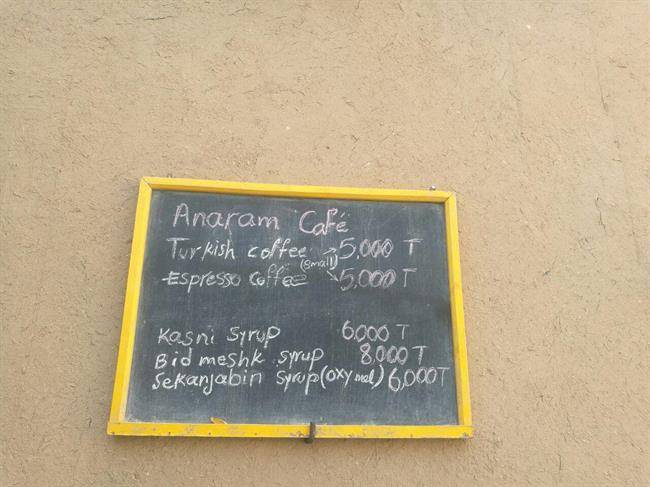 Anaram Café
Turkish coffee 5,000 T
(small)
Espresso Coffee 5,000 T
Kasni Syrup 6,000 T
Bid meshk syrup 8,000 T
Sekanjabin syrup (oxymel) 6,000T